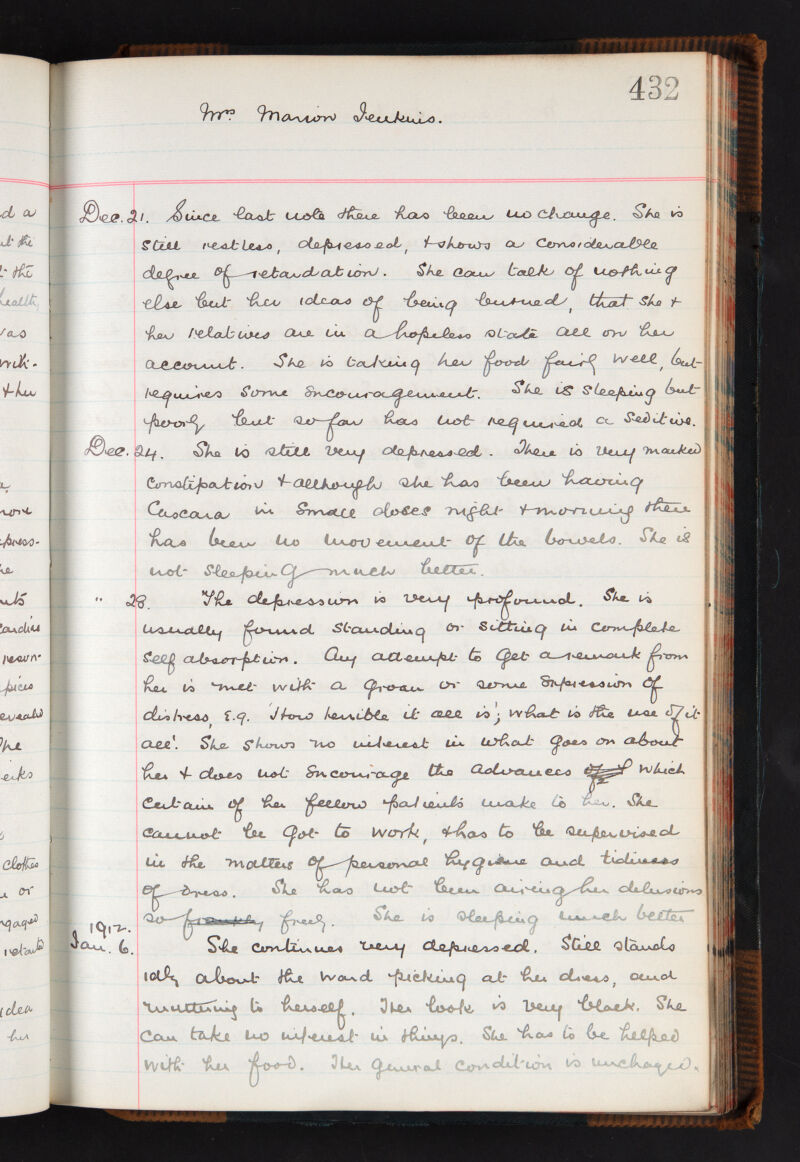 432
Mrs Marion Jenkins.
Dec. 21. Since last note there has been no change. She is
still restless, depressed, & shows a considerable
degree of retardation. She can talk of nothing
else but her ideas of being burned, that she &
her relatives are in a hopeless state all on her
account. She is taking her food fairly well, but
requires some encouragement. She is sleeping but
poorly but so far has not required a Seditive.
Dec. 24. She is still very depressed. There is very marked
constipation & although she has been having
Cascara in small doses night & morning there
has been no movement of the bowels. She is
not sleeping much better.
" 28. The depression is very profound. She is
usually found standing or sitting in complete
self absorption. Any attempt to get a remark from
her is met with a groan or some expression of
distress, e.g. 'How terrible it all is'; 'what is the use of it
all'. She shows no interest in what goes on about
her & does not encourage the advances of which
certain of her fellow patients make to her. She
cannot be got to work, & has to be supervised
in the matters of personal hygiene and tidiness
of dress. She has not been airing her delusions
so frankly freely. She is sleeping much better
1912.
Jan. 6. She continues very depressed. Still stands
idly about the ward picking at her dress, and
muttering to herself. Her look is very black. She
can take no interest in things. She has to be helped
with her food. Her general condition is unchaged.
d a
the
health,
was
& her
more
he
The
clothes
or
idea
her